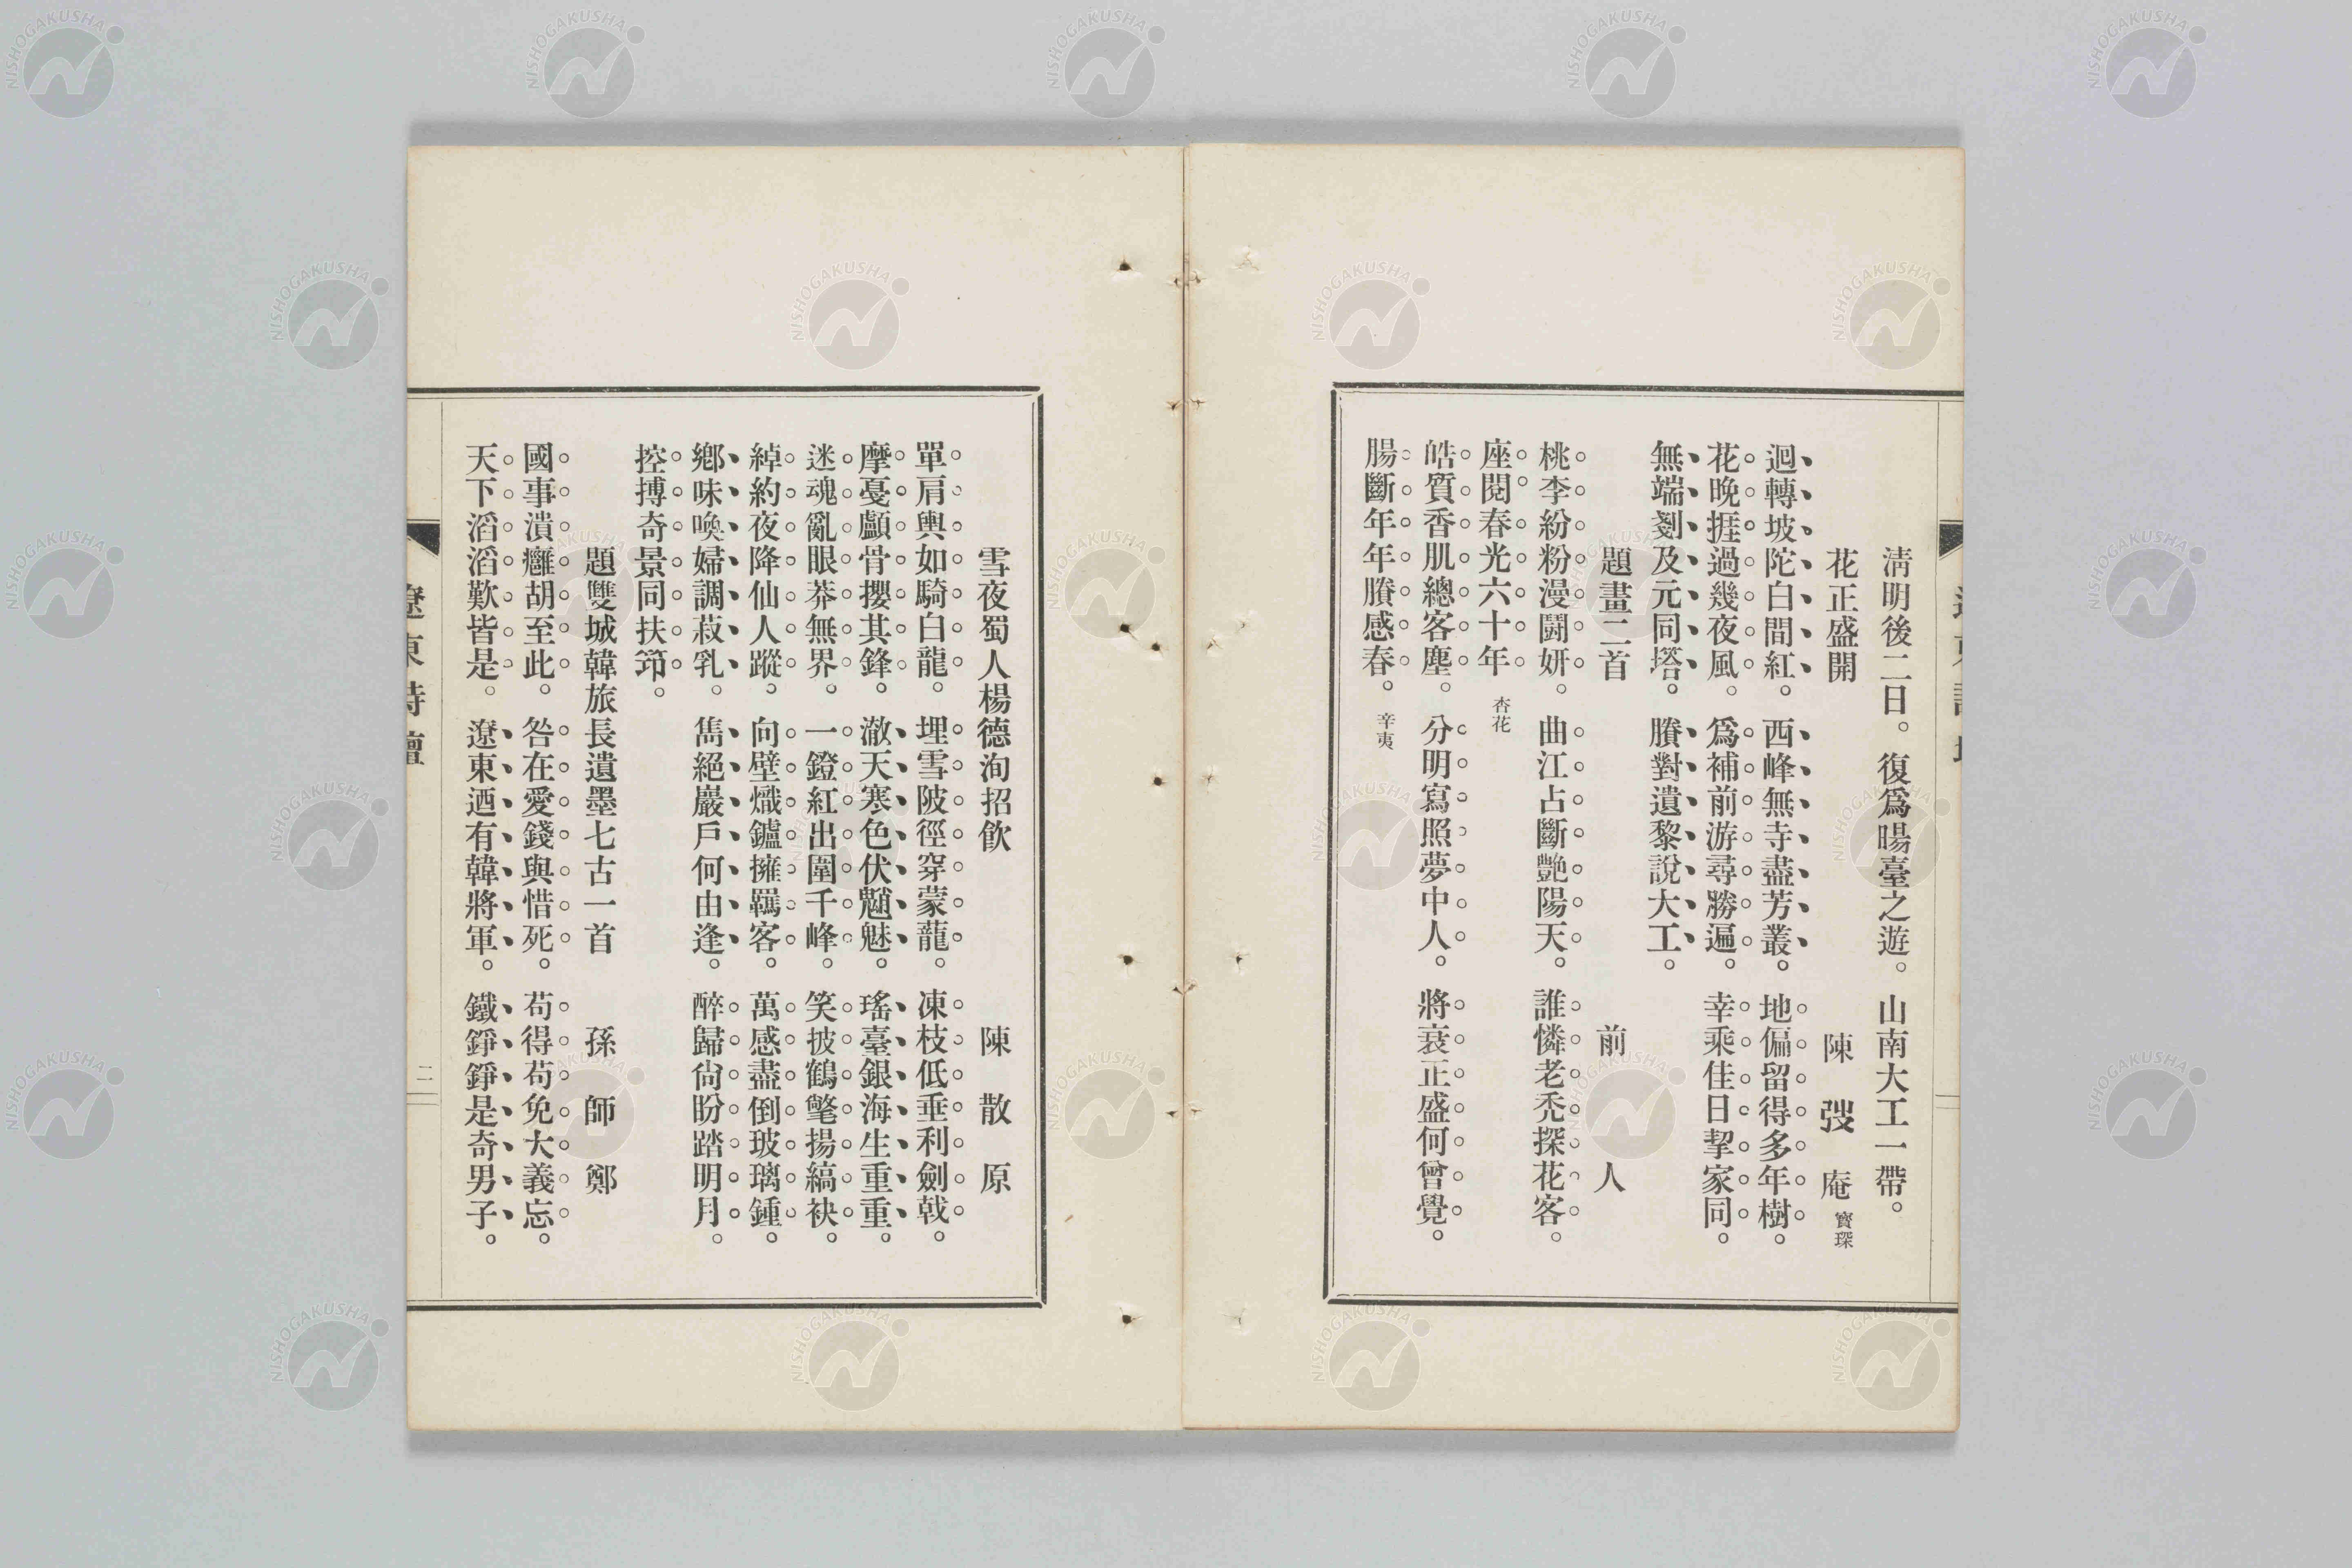 清明後二日。復爲暘臺之遊。山南大工一帶。
花正盛開　陳弢庵 寶琛
迴轉坡陀白間紅。西峰無寺盡芳叢。地偏留得多年樹。
花晩捱過幾夜風。爲補前游尋勝遍。幸乘佳日挈家同。
無端剗及元同塔。賸對遺黎說大工。
題畫二首　前人
桃李紛粉漫鬪妍。曲江占斷艷陽天。誰憐老禿探花客。
座閱春光六十年 杏花
皓質香肌總客塵。分明寫照夢中人。將衰正盛何曾覺。
腸斷年年賸感春。 辛夷
雪夜蜀人楊德洵招飲　陳散原
單肩輿如騎白龍。埋雪陂徑穿蒙蘢。凍枝低垂利劍戟。
摩戞顱骨攖其鋒。澈天寒色伏魑魅。瑤臺銀海生重重。
迷魂亂眼莽無界。一鐙紅出圍千峰。笑披鶴氅揚縞袂。
綽約夜降仙人蹤。向壁熾鑪擁羈客。萬感盡倒玻璃鍾。
鄉味喚婦調菽乳。雋絕巖戶何由逢。醉歸尙盼踏明月。
控搏奇景同扶筇。
題雙城韓旅長遺墨七古一首　孫師鄭
國事潰癰胡至此。咎在愛錢與惜死。苟得苟免大義忘。
天下滔滔歎皆是。遼東迺有韓將軍。鐵錚錚是奇男子。
遼東詩壇
二
NISHOGAKUSHA